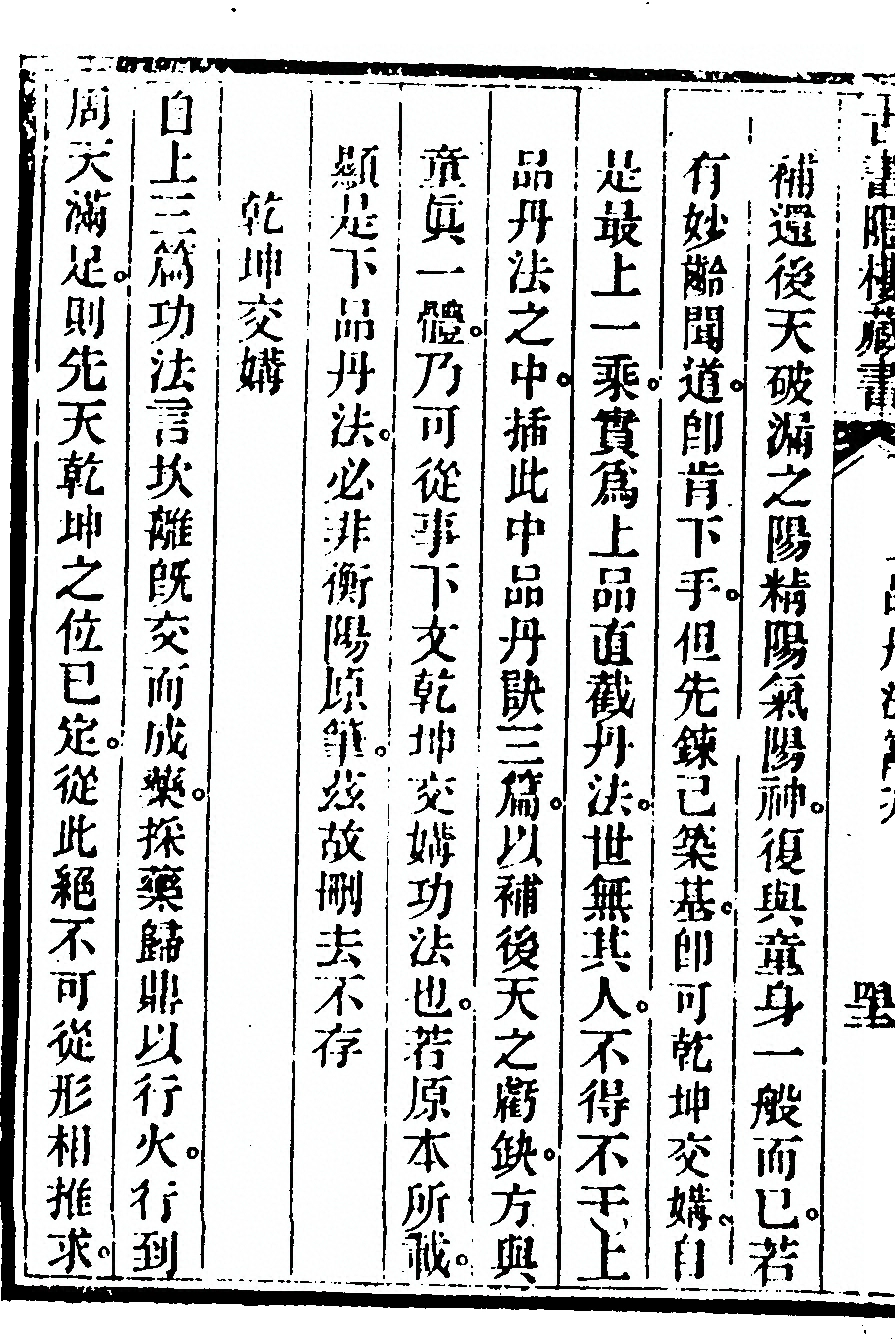 古書隱樓藏書
上品丹法節次
補還後天破漏之陽精陽氣陽神。復與童身一般而已。若
有妙齡聞道。卽肯下手。但先鍊己築基。卽可乾坤交媾。自
是最上一乘。實爲上品直截丹法。世無其人。不得不于上
品丹法之中。插此中品丹訣三篇。以補後天之虧缺。方與
童眞一體。乃可從事下文乾坤交媾功法也。若原本所載。
顯是下品丹法。必非衡陽原筆。茲故刪去不存
乾坤交媾
自上三篇功法言坎離旣交而成藥。採藥歸鼎以行火。行到
周天滿足。則先天乾坤之位已定。從此絕不可從形相推求。